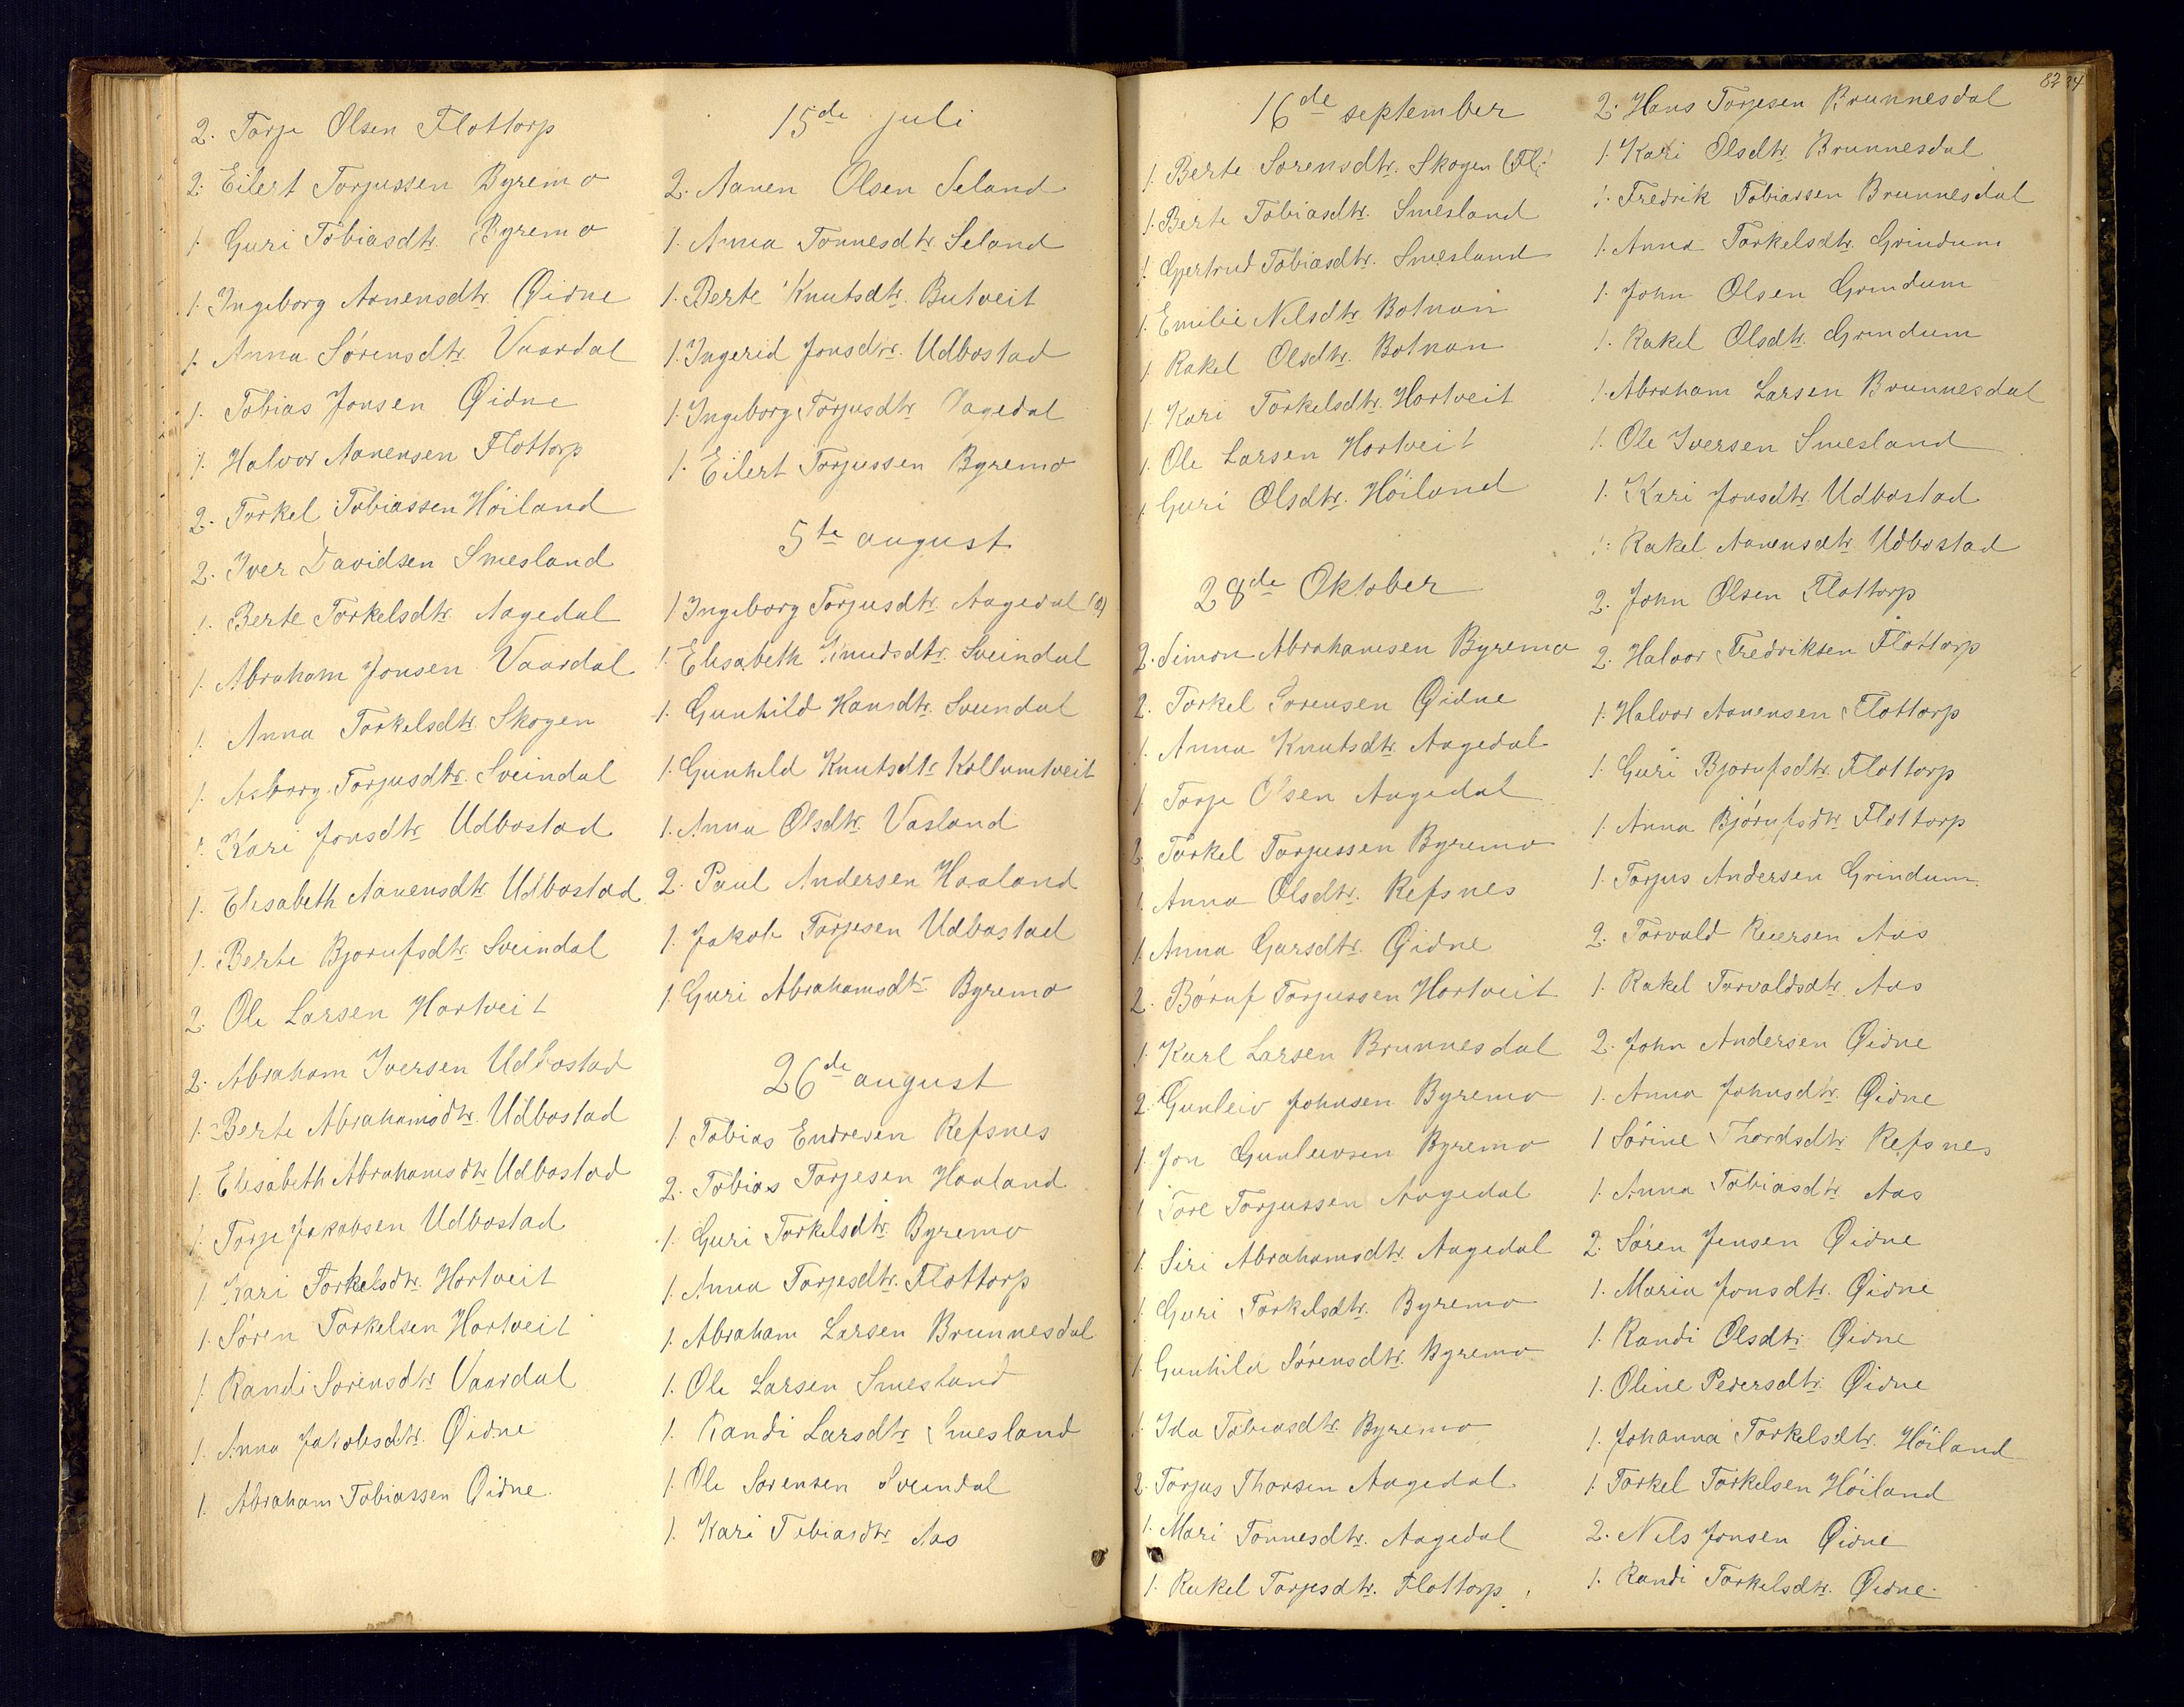 2. Torje Olsen Flottorp
2. Eilert Torjussen Byremo
1. Guri Tobiasdtr. Byremo
1. Ingeborg Aanensdtr. Øidne
1. Anna Sörensdtr. Vaardal
1. Tobias Jonsen Øidne
1. Halvor Aanensen Flottorp
2. Torkel Tobiassen Höiland
2. Iver Davidsen Smesland
1. Berte Torkelsdtr. Aagedal
1. Abraham Jonsen Vaardal
1. Anna Torkelsdtr. Skogen
1. Asborg Torjusdtr. Sveindal
1. Kari Jonsdtr. Udbostad
1. Elisabeth Aanensdtr. Udbostad
1. Berte Bjorufsdtr. Sveindal
2. Ole Larsen Hortveit
2. Abraham Iversen Udbostad
1. Berte Abrahamsdtr. Udbostad
1. Elisabeth Abrahamsdtr. Udbostad
1. Torje Jakobsen Udbostad
1. Kari Torkelsdtr. Hortveit
1. Sören Torkelsen Hortveit
1. Randi Sorensdtr. Vaardal
1. Anna Jakobsdtr. Øidne
1. Abraham Tobiassen Øidne.
15de juli
2. Aanen Olsen Seland
1. Anna Tonnesdtr. Seland
1. Berte Knutsdtr. Butveit
1. Ingerid Jonsdtr. Udbostad
1. Ingeborg Torjusdtr. Aagedal
1. Eilert Torjussen Byremo
5te august
1 Ingeborg Torjusdtr. Aagedal
1. Elisabeth Knudsdtr. Sveindal
1. Gunhild Hansdtr. Sveindal
1. Gunhild Knutsdtr. Kollumtveit
1. Anna Olsdtr. Vasland
2. Paul Andersen Haaland
1. Jakob Torjesen Udbostad
1. Guri Abrahamsdtr. Byremo
26de august
1. Tobias Endresen Refsnes
2. Tobias Torjesen Haaland
1. Guri Torkelsdtr. Byremo
1. Anna Torjesdtr. Flottorp
1. Abraham Larsen Brunnesdal
1. Ole Larsen Smesland
1. Randi Larsdtr. Smesland
1. Ole Sorensen Sveindal
1. Kari Tobiasdtr. Aas
16de september
1. Berte Sorensdtr. Skogen (Fl:
1. Berte Tobiasdtr. Smesland
1. Gjertrud Tobiasdtr. Smesland
1. Emilie Nilsdtr. Botnan
1. Rakel Olsdtr. Botnan
1. Kari Torkelsdtr. Hortveit
1. Ole Larsen Hortveit
1 Guri Olsdtr. Höiland
28de Oktober
2. Simon Abrahamsen Byremo
2. Torkel Sorensen Øidne
1. Anna Knutsdtr. Aagedal
1 Torje Olsen Aagedal
2 Torkel Torjussen Byremo
1. Anna Olsdtr. Refsnes
1 Anna Garsdtr. Øidne
2. Boruf Torjussen Hortveit
1. Karl Larsen Brunnesdal
2. Gunleiv Johnsen Byremo
1. Jon Gunleivsen Byremo
1 Tore Torjussen Aagedal
1. Siri Abrahamsdtr. Aagedal
1. Guri Torkelsdtr. Byremo
1. Gunhild Sörensdtr. Byremo
1 Ida Tobiasdtr. Byremo
2. Torjus Thorsen Aagedal
1. Mari Tonnesdtr. Aagedal
1. Rakel Torjesdtr. Flottorp
82 84
2. Hans Torjesen Brunnesdal
1. Kari Olsdtr. Brunnesdal
1. Fredrik Tobiassen Brunnesdal
1. Anna Torkelsdtr. Grindum
1. John Olsen Grindum
1. Rakel Olsdtr. Grindum
1. Abraham Larsen Brunnesdal
1. Ole Iversen Smesland
1. Kari Jonsdtr. Udbostad
1. Rakel Aanensdtr. Udbostad
2. John Olsen Flottorp
2. Halvor Fredriksen Flottorp
1. Halvor Aanensen Flottorp
1. Guri Bjorufsdtr. Flottorp
1. Anna Björufsdtr. Flottorp
1. Torjus Andersen Grindum.
2. Torvald Reiersen Aas
1. Rakel Torvaldsdtr. Aas
2. John Andersen Øidne
1. Anna Johnsdtr. Øidne
1 Sörine Thordsdtr. Refsnes
1. Anna Tobiasdtr. Aas
2. Sören Jensen Øidne
1. Maria Jonsdtr. Øidne
1. Randi Olsdtr. Øidne
1. Oline Pedersdtr. Øidne
1. Johanna Torkelsdtr. Höiland
1. Torkel Torkelsen Höiland
2. Nils Jonsen Øidne
1. Randi Torkelsdtr. Øidne.